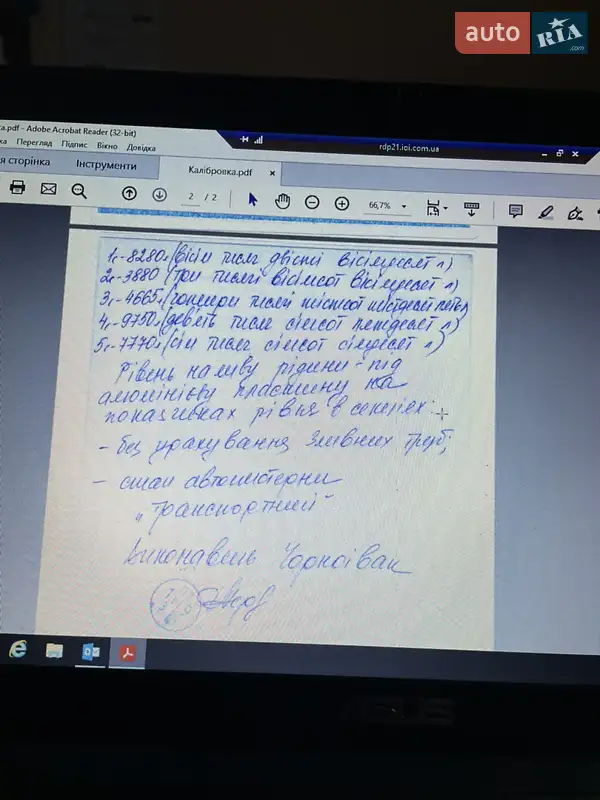 auto RIA .com
ca.pdf - Adobe Acrobat Reader (32-bit)
Перегляд Підпис Вікно Довідка
rdp21.ioi.com.ua
я сторінка Інструменти Калібровка.pdf ×
2 / 2 66,7%
1с-8280л (вісім тисяч двісті вісімдесят л)
2с-3880 (три тисячі вісімсот вісімдесят л)
3с-4665л (чотири тисячі шістсот шістдесят пять)
4с-9750л (девять тисяч сімсот пятдесят л)
5с-7770л (сім тисяч сімсот сімдесят л)
Рівень наливу рідини - під
алюмінієву пластину на
показчиках рівня в секціях:
- без урахування зливних труб;
- стан автоцистерни
"Транспортний"
Виконавець Чорноіван
ASUS